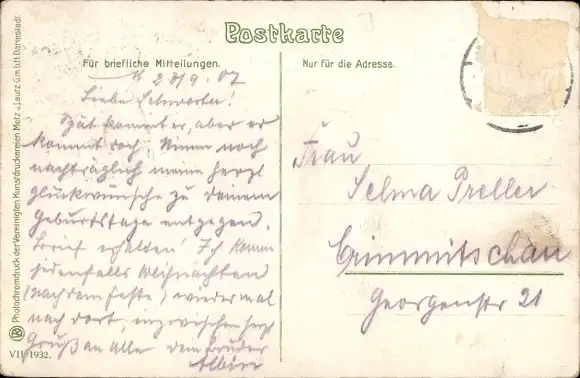 Postkarte
Für briefliche Mitteilungen.
Nur für die Adresse.
28/9. 07
Liebe Schwester!
Spät kommt er, aber er
kommt doch. Nimm noch
nachträglich meine herzl
glückwünsche zu deinem
Geburtstage entgegen.
Brief erhalten! Ich komme
jedenfalls Weihnachten
(nach dem Feste) wieder mal
nach dort, inzwischen herzl
Gruß an alle dein Bruder
Albin
Frau
Selma Preller
Crimmitschau
Georgenstr 21
Photochromdruck der Vereinigten Kunstdruckereien Metz u. Lautz G.m.b.H. Darmstadt.
VII/1932.